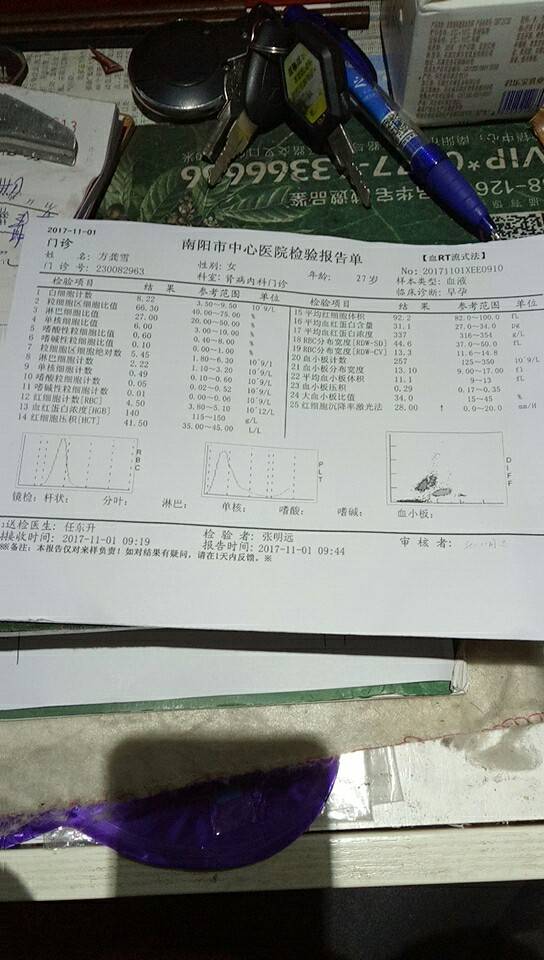 2017-11-01
门诊
南阳市中心医院检验报告单
【血RT流式法】
姓 名: 方龚雪
性别: 女
年龄: 27岁
No: 20171101XEE0910
门 诊 号: 230082963
科室: 肾病内科门诊
样本类型: 血液
临床诊断: 早孕
检验项目 结 果 参考范围 单位
1 白细胞计数 8.22 3.50~9.50 10^9/L
2 粒细胞区细胞比值 66.30 40.00~75.00 %
3 淋巴细胞比值 27.00 20.00~50.00 %
4 单核细胞比值 6.00 3.00~10.00 %
5 嗜酸性粒细胞比值 0.60 0.40~8.00 %
6 嗜碱性粒细胞比值 0.10 0.00~1.00 %
7 粒细胞区细胞绝对数 5.45 1.80~6.30 10^9/L
8 淋巴细胞计数 2.22 1.10~3.20 10^9/L
9 单核细胞计数 0.49 0.10~0.60 10^9/L
10 嗜酸粒细胞计数 0.05 0.02~0.52 10^9/L
11 嗜碱粒细胞计数 0.01 0.00~0.06 10^9/L
12 红细胞计数[RBC] 4.50 3.80~5.10 10^12/L
13 血红蛋白浓度[HGB] 140 115~150 g/L
14 红细胞压积[HCT] 41.50 35.00~45.00 L/L
检验项目 结 果 参考范围 单位
15 平均红细胞体积 92.2 82.0~100.0 fL
16 平均血红蛋白含量 31.1 27.0~34.0 pg
17 平均血红蛋白浓度 337 316~354 g/L
18 RBC分布宽度[RDW-SD] 44.6 37.0~50.0 fL
19 RBC分布宽度[RDW-CV] 13.3 11.6~14.8 %
20 血小板计数 257 125~350 10^9/L
21 血小板分布宽度 13.10 9.00~17.00 fl
22 平均血小板体积 11.1 9~13 fL
23 血小板压积 0.29 0.17~0.35
24 大血小板比值 34.0 15~45 %
25 红细胞沉降率激光法 28.00 ↑ 0.0~20.0 mm/H
RBC
PLT
DIFF
镜检: 杆状: 分叶: 淋巴: 单核: 嗜酸: 嗜碱: 血小板:
送检医生: 任东升
检 验 者: 张明远
审 核 者:
接收时间: 2017-11-01 09:19
报告时间: 2017-11-01 09:44
※备注: 本报告仅对来样负责! 如对结果有疑问, 请在1天内反馈。※